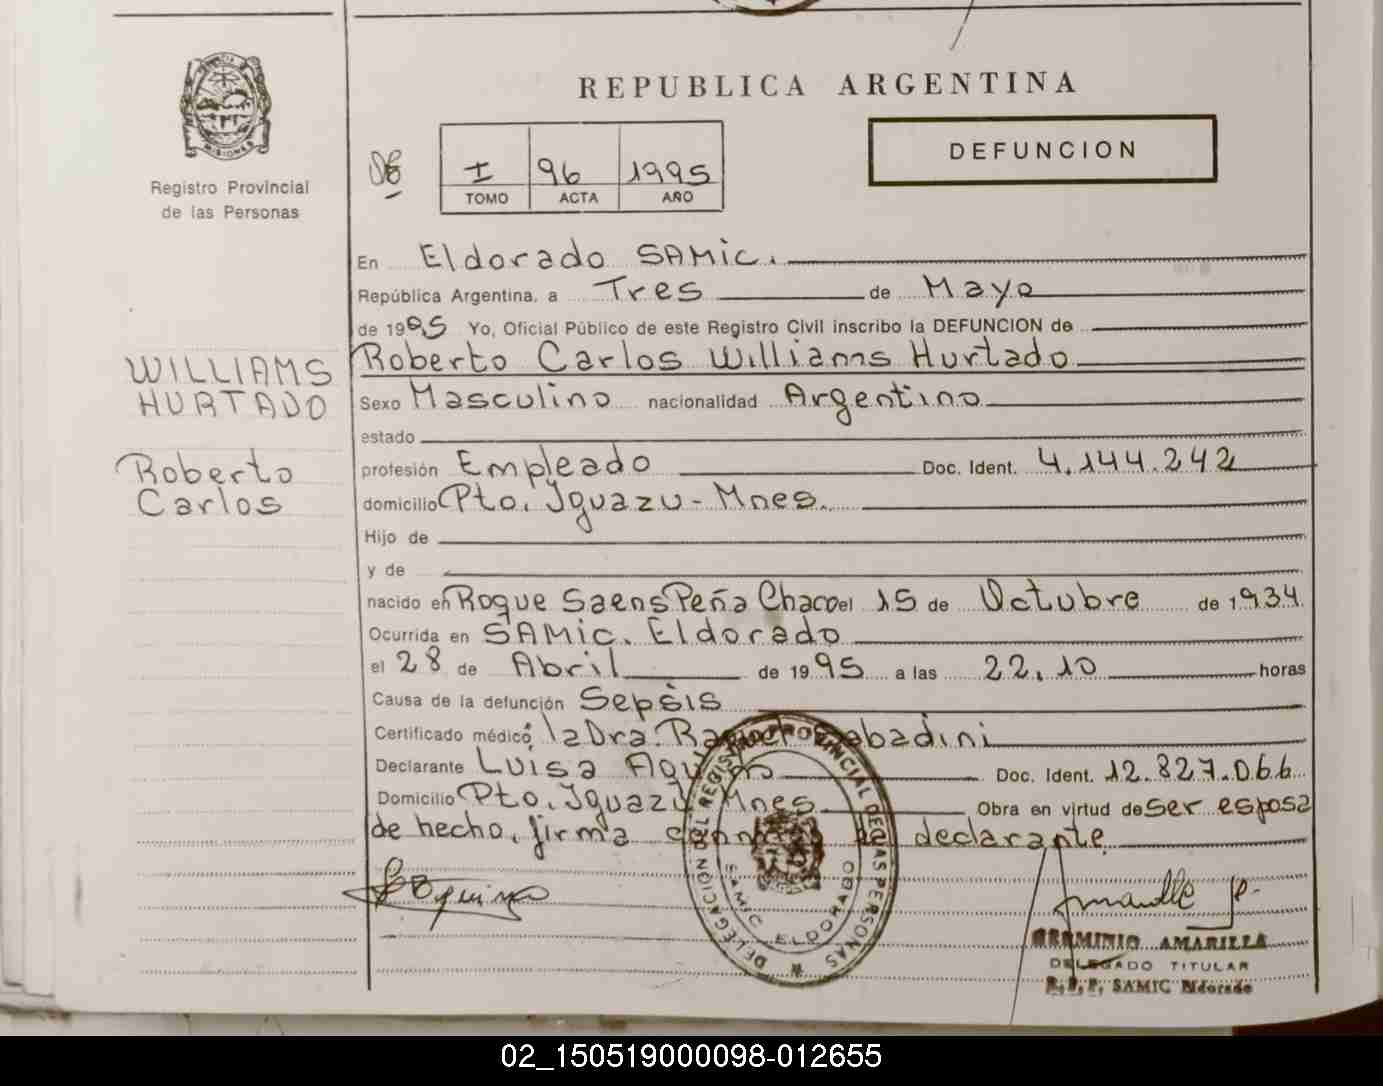 REPUBLICA ARGENTINA
MISIONES
Registro Provincial
de las Personas
I 96 1995
TOMO ACTA AÑO
DEFUNCION
En Eldorado SAMic.
República Argentina, a Tres de Mayo
de 1995 Yo, Oficial Público de este Registro Civil inscribo la DEFUNCION de
WILLIAMS
HURTADO
Roberto
Carlos
Roberto Carlos Williams Hurtado
Sexo Masculino nacionalidad Argentino
estado
profesión Empleado Doc. Ident. 4.144.242
domicilio Pto. Iguazu - Mnes.
Hijo de
y de
nacido en Roque Saens Peña Chaco el 15 de Octubre de 1934
Ocurrida en SAMic. Eldorado
el 28 de Abril de 1995 a las 22.10 horas
Causa de la defunción Sepsis
Certificado médico la Dra. Raquel Sabadini
Declarante Luisa Doc. Ident. 12.827.066
Domicilio Pto. Iguazu Mnes Obra en virtud de ser esposa
de hecho, firma declarante
DELEGACION DEL REGISTRO PROVINCIAL DE LAS PERSONAS
SAMIC ELDORADO
HERMINIO AMARILLA
DELEGADO TITULAR
R.P.P. SAMIC Eldorado
02_150519000098-012655